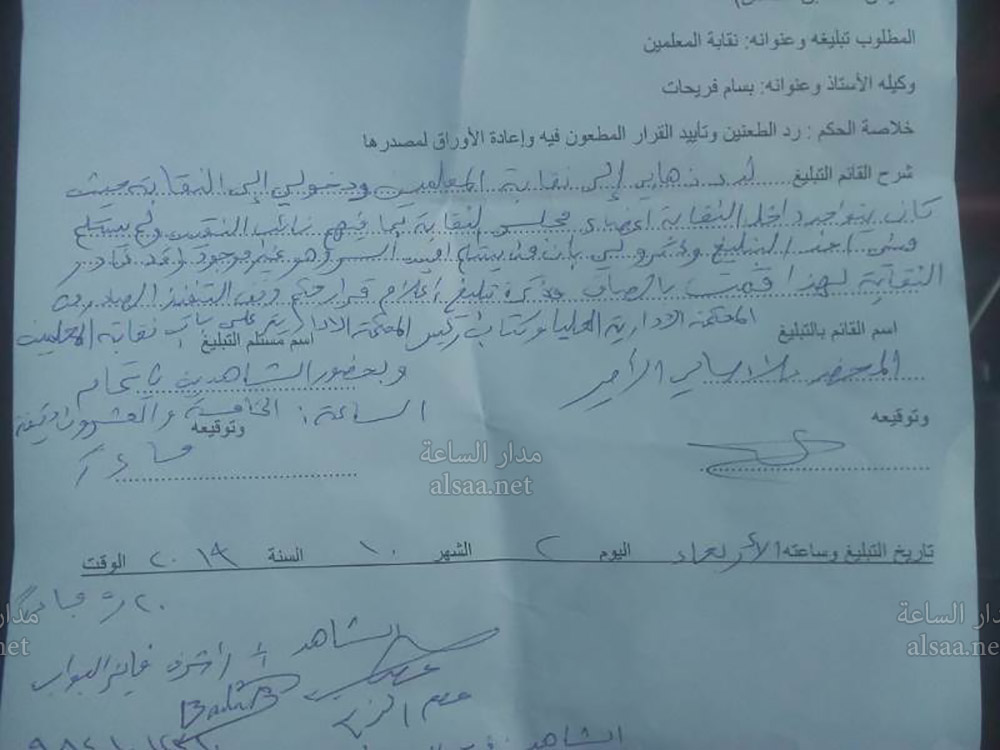 المطلوب تبليغه وعنوانه: نقابة المعلمين
وكيله الأستاذ وعنوانه: بسام فريحات
خلاصة الحكم : رد الطعنين وتأييد القرار المطعون فيه وإعادة الأوراق لمصدرها
شرح القائم التبليغ لدى ذهابي إلى نقابة المعلمين ودخولي إلى النقابة حيث
كان يتواجد داخل النقابة اعضاء مجلس النقابة بما فيهم نائب النقيب ولم يستلم
مني احد التبليغ بان يستلم امين السر وهو غير موجود وقد غادر
النقابة لهذا قمت بالصاق مذكرة تبليغ إعلام قرار حكم وقف التنفيذ الصادر عن
المحكمة الادارية العليا وكتاب رئيس المحكمة الادارية على باب نقابة المعلمين
اسم القائم بالتبليغ
اسم مستلم التبليغ
المحضر
وبحضور الشاهدين بتمام
الساعة: الخامسة والعشرون دقيقة
وتوقيعه
وتوقيعه
مساءً
مدار الساعة
alsaa.net
تاريخ التبليغ وساعته الأربعاء اليوم ٢ الشهر ١٠ السنة ٢٠١٩ الوقت
مدار الساعة
alsaa.net
مدار الساعة
الشاهد
net
الشاهد